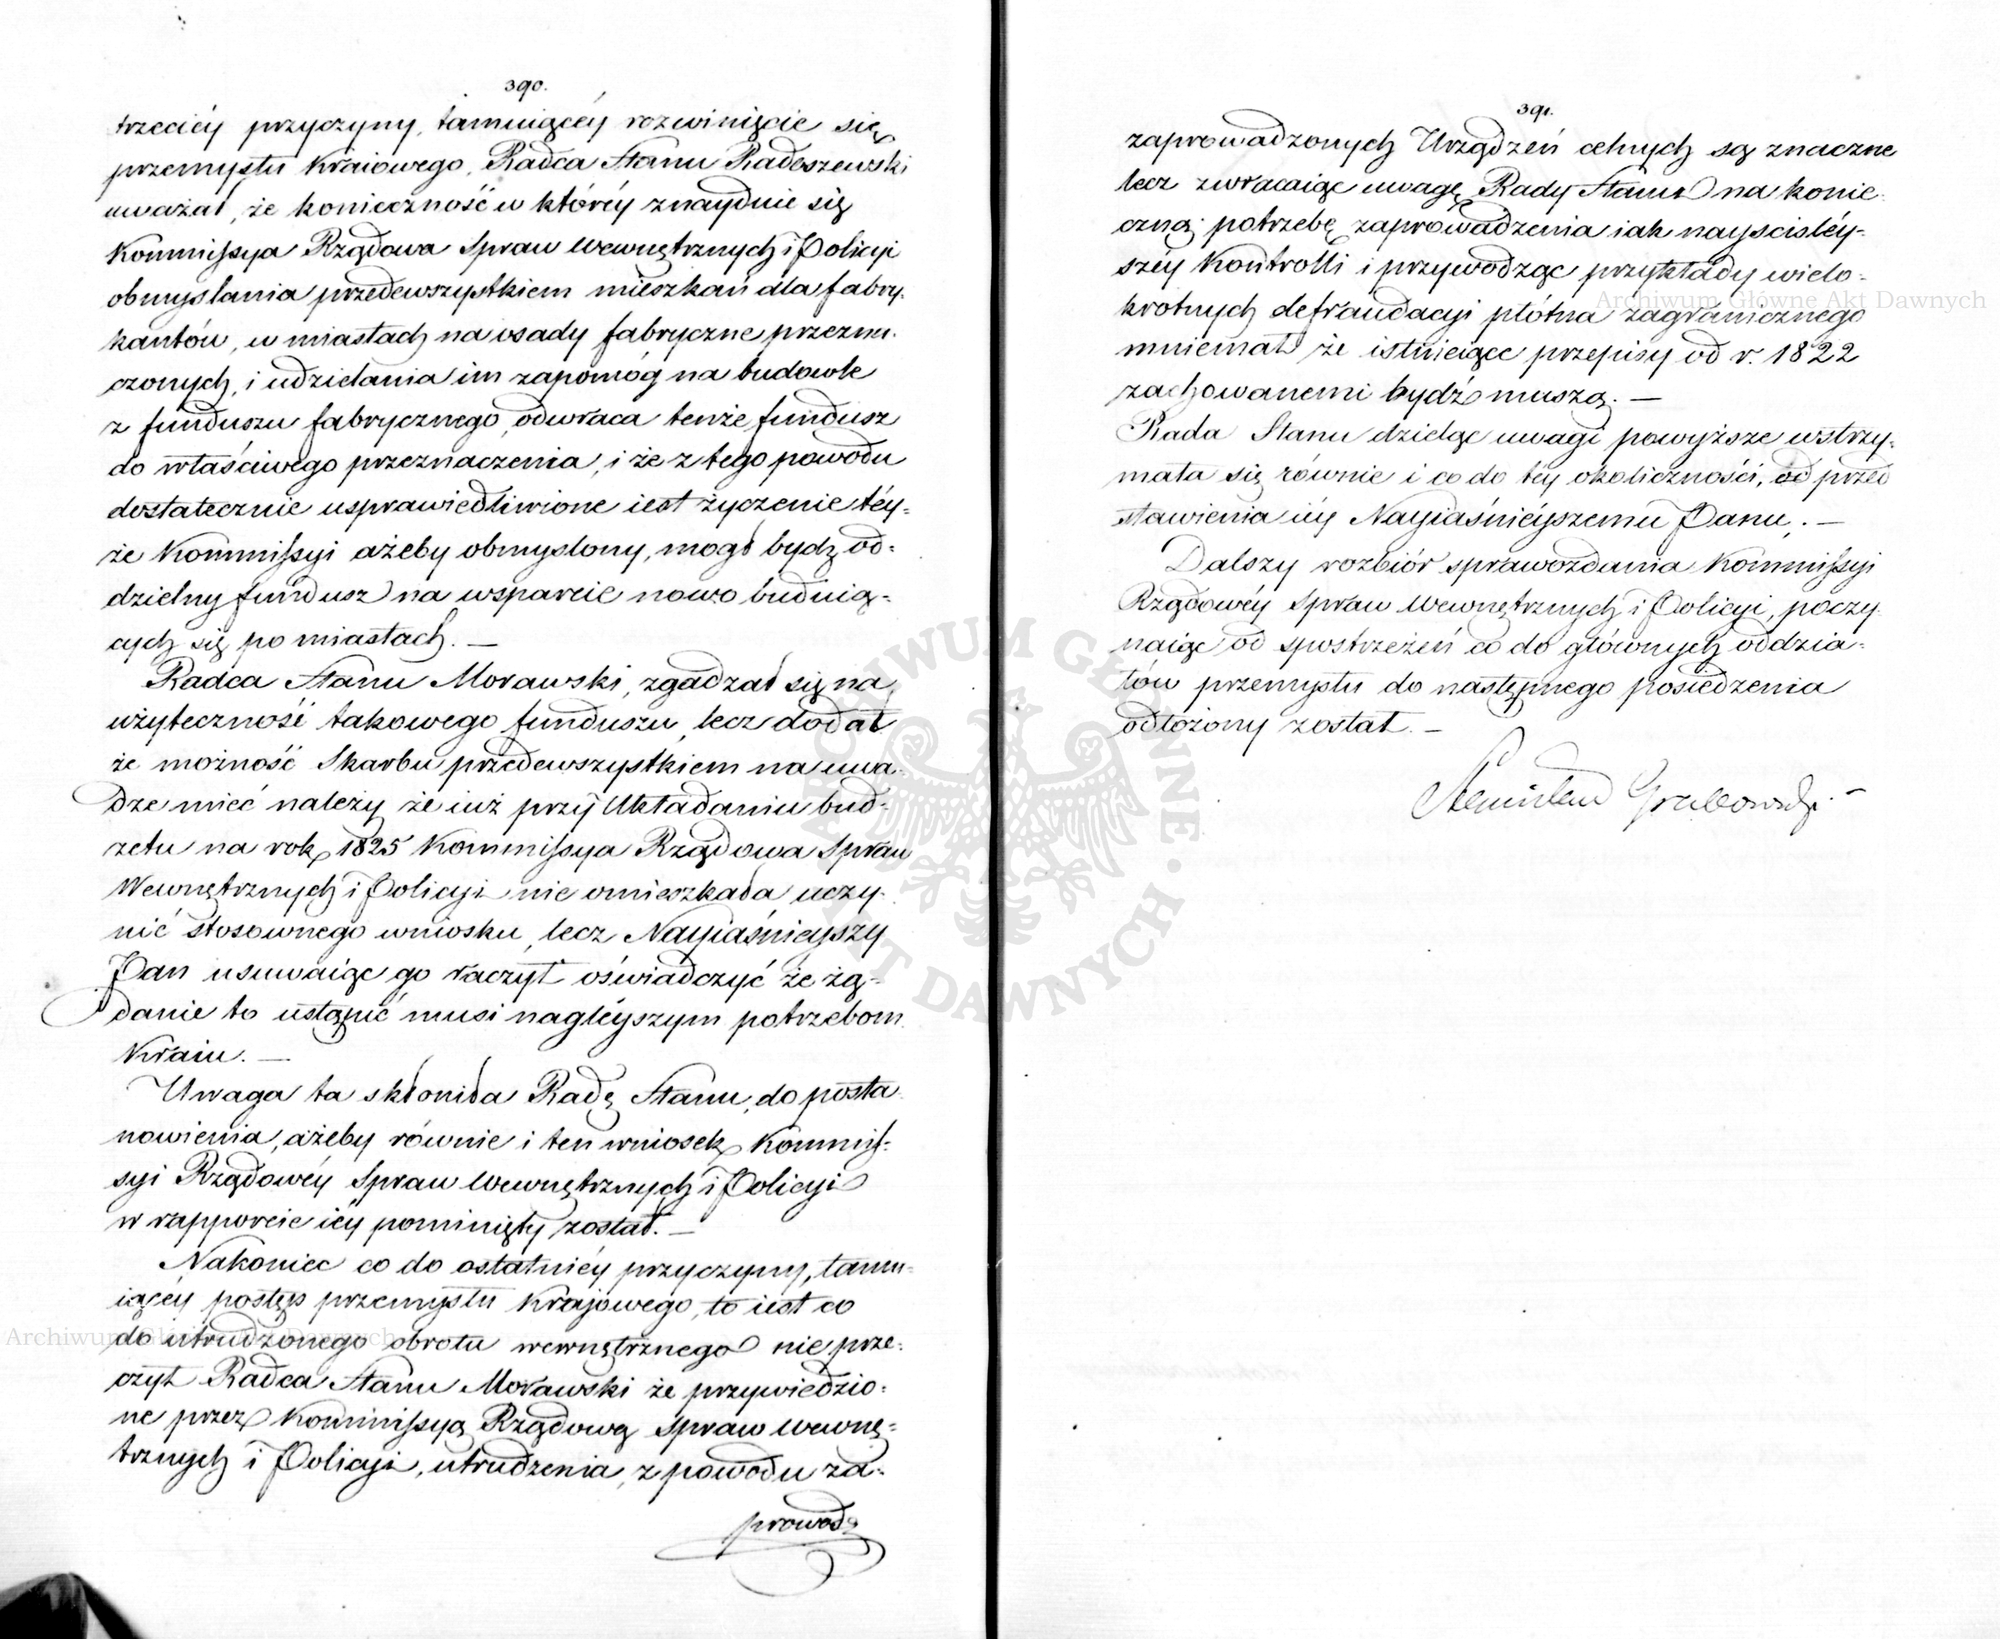 390.
trzeciéy przyczyny, tamuiącéy rozwinięcie się
przemysłu kraiowego, Radca Stanu Radoszewski
uważał, że konieczność w któréy znayduie się
Kommissya Rządowa Spraw Wewnętrznych i Policyi
obmyslania przedewszystkiem mieszkań dla fabry-
kantów, w miastach na osady fabryczne przezna-
czonych, i udzielania im zapomóg na budowle
z funduszu fabrycznego, odwraca tenże fundusz
do właściwego przeznaczenia, i że z tego powodu
dostatecznie usprawiedliwione iest życzenie téy-
że Kommissyi ażeby obmyslony, mógł bydź od-
dzielny fundusz na wsparcie nowo buduią-
cych się po miastach. —
Radca Stanu Morawski, zgadzał się na
użyteczność takowego funduszu, lecz dodał
że możność Skarbu przedewszystkiem na uwa-
dze mieć należy że iuż przy Układaniu bud-
żetu na rok 1825 Kommissya Rządowa Spraw
Wewnętrznych i Policyi nie omieszkała uczy-
nić stosownego wniosku, lecz Nayiaśnieyszy
Pan usuwaiąc go raczył oświadczyć że żą-
danie to ustąpić musi nagléyszym potrzebom
Kraiu. —
Uwaga ta skłoniła Radę Stanu, do posta
nowienia, ażeby równie i ten wniosek Kommis-
syi Rządowéy Spraw Wewnętrznych i Policyi
w rapporcie iéy pominięty został. —
Nakoniec co do ostatniéy przyczyny, tamu-
iącéy postęp przemysłu Krajowego, to iest co
do utrudzonego obrotu wewnętrznego nie prze-
czył Radca Stanu Morawski że przywiedzio-
ne przez Kommissyą Rządową Spraw Wewnę-
trznych i Policyi, utrudzenia, z powodu za-
prowadz
391.
zaprowadzonych Urządzeń celnych są znaczne
lecz zwracaiąc uwagę Rady Stanu na konie
czną potrzebę zaprowadzenia iak nayscisléy-
széy Kontrolli i przywodząc przykłady wielo-
krotnych defraudacyi płótna zagranicznego
mniemał że istnieiące przepisy od r. 1822
zachowanemi bydź muszą. —
Rada Stanu dzieląc uwagi powyższe wstrzy-
mała się równie i co do téy okoliczności, od przed
stawienia iéy Nayiaśnieyszemu Panu. —
Dalszy rozbiór sprawozdania Kommissyi
Rządowéy Spraw Wewnętrznych i Policyi, poczy-
naiąc od spostrzeżeń co do głównych oddzia-
łów przemysłu do następnego posiedzenia
odłożony został. —
Stanisław Grabowski. —
Archiwum Główne Akt Dawnych
Archiwum Główne Akt Dawnych
ARCHIWUM GŁÓWNE AKT DAWNYCH